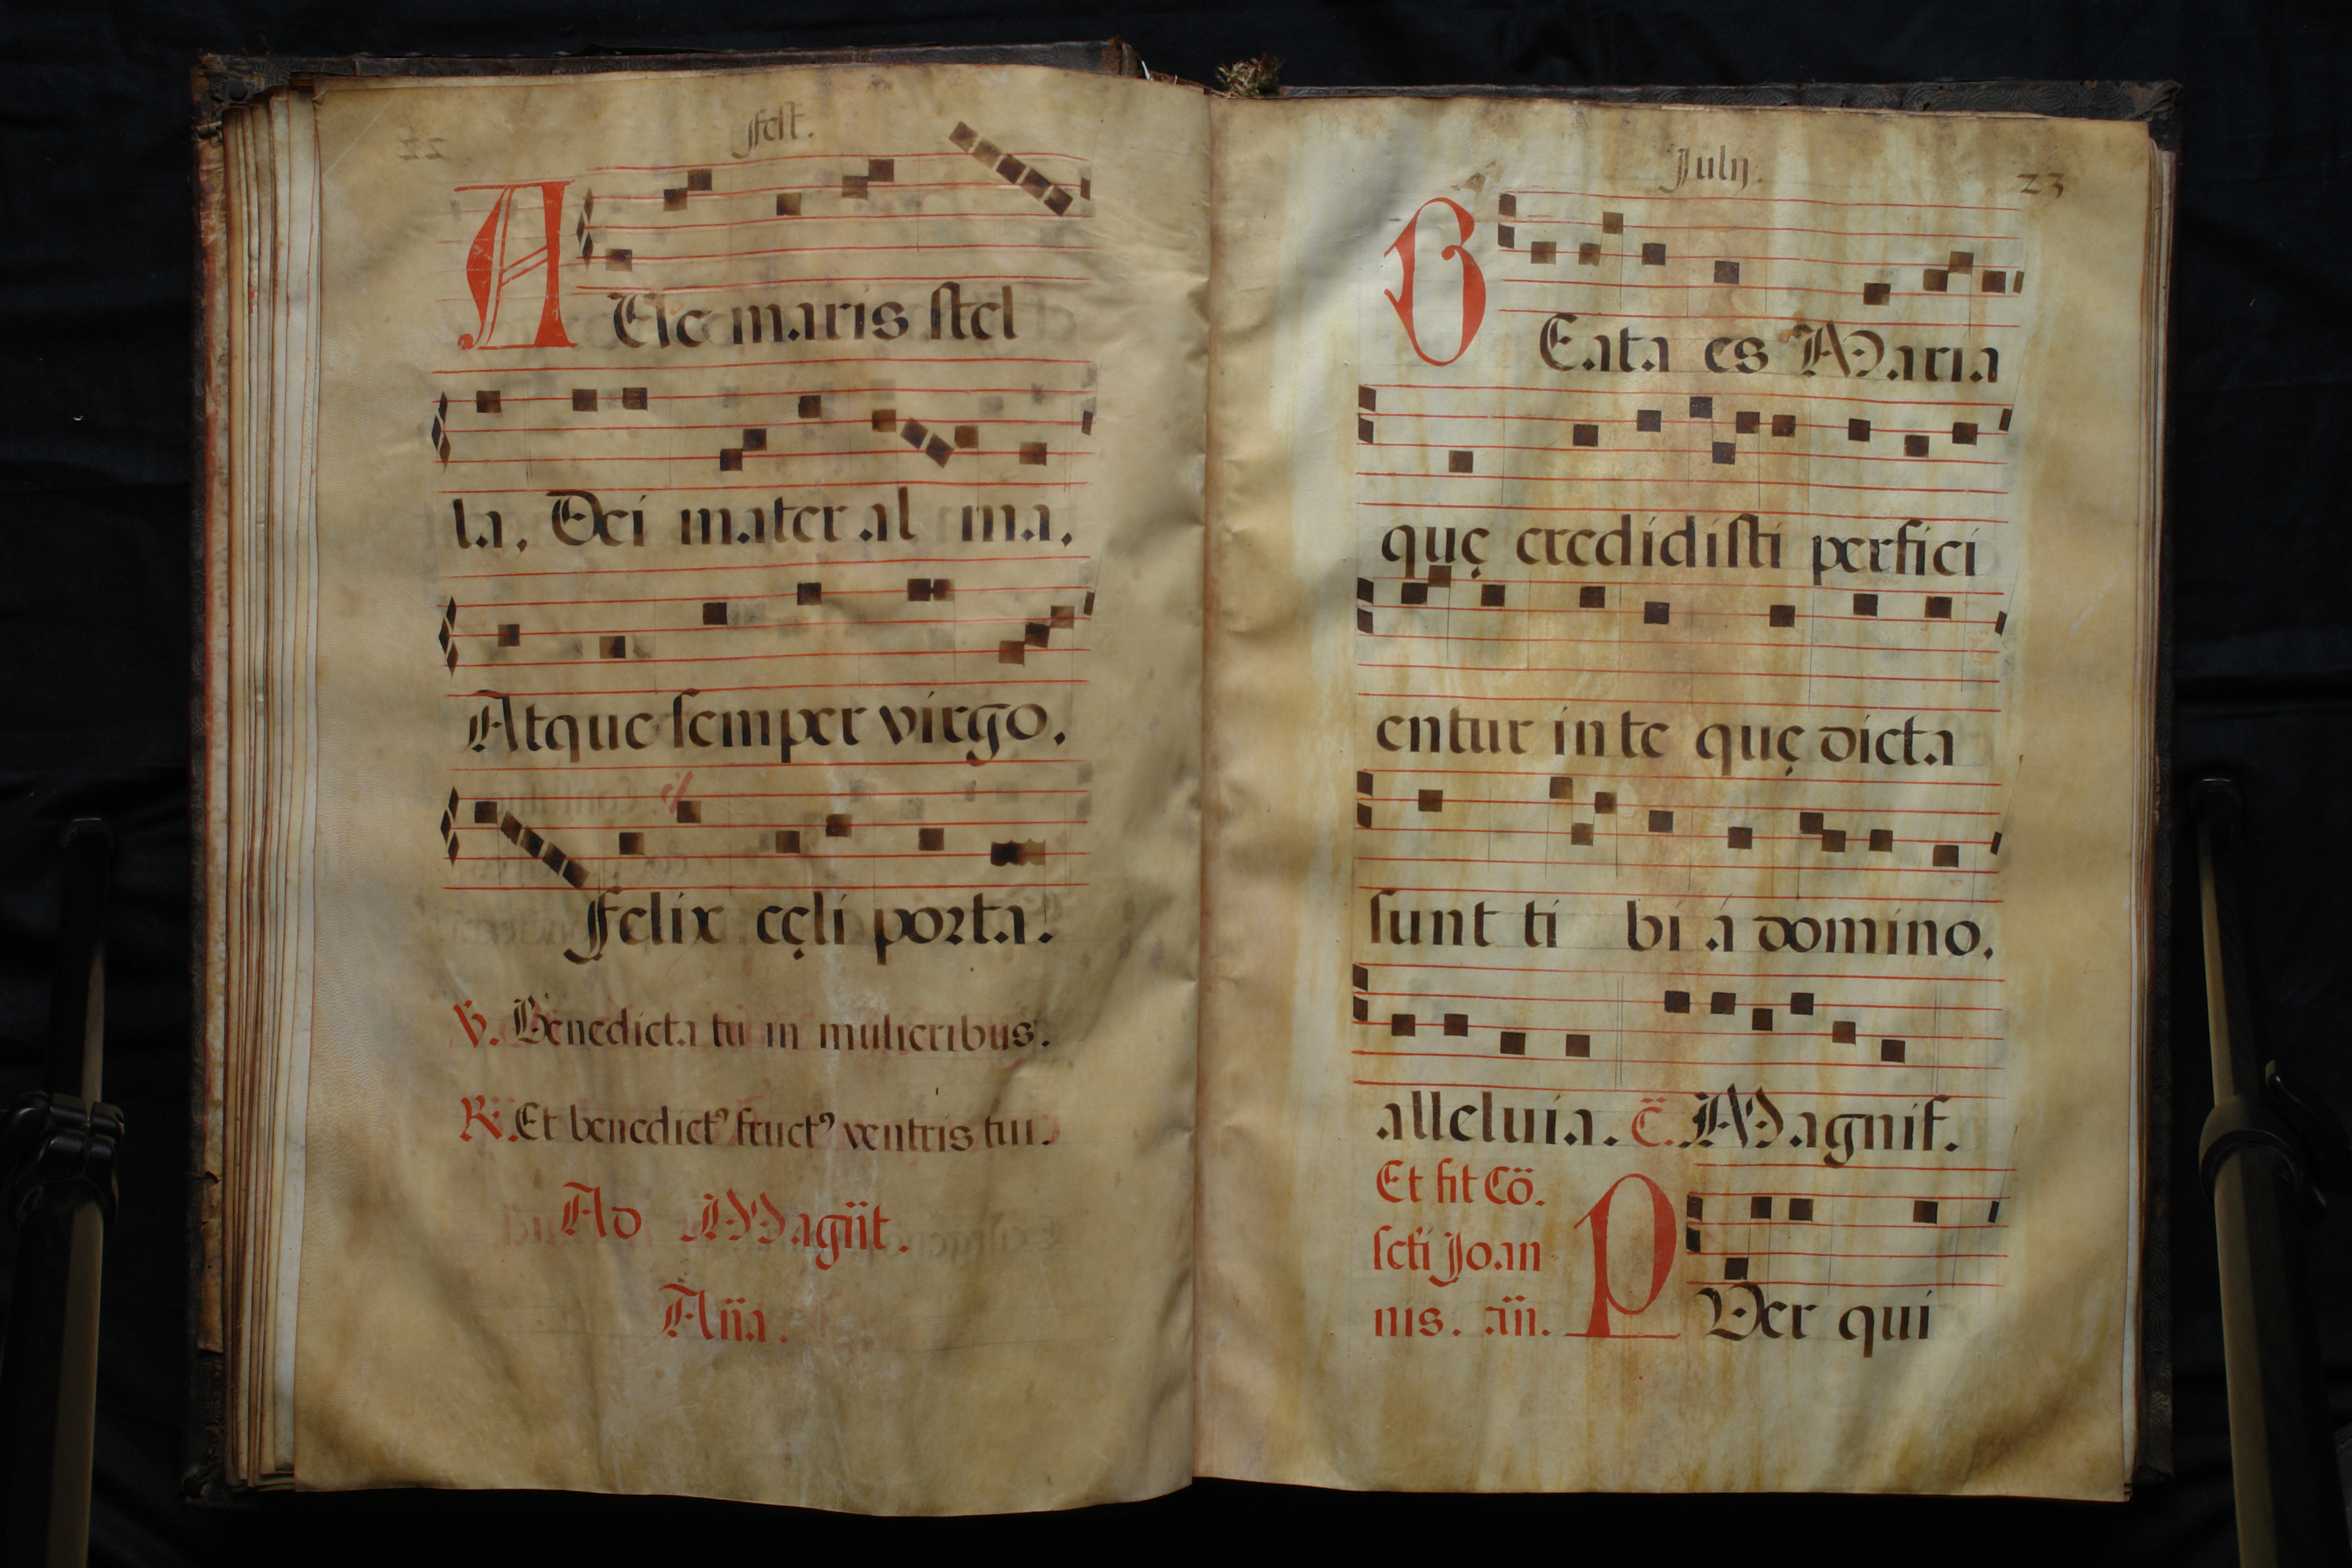 Fest.
A
Ele maris stel
la, Dei mater al ma,
Atque semper virgo,
Felix cęli porta.
V. Benedicta tu in mulieribus.
R. Et benedictꝰ fructꝰ ventris tui.
Ad Magñt.
Aña.
July.
23
B
Eata es Maria
quę credidisti perfici
entur in te quę dicta
sunt ti bi á domino,
alleluia. c̃. Magnif.
Et fit Cõ.
scti Joan
nis. añ.
P
Uer qui